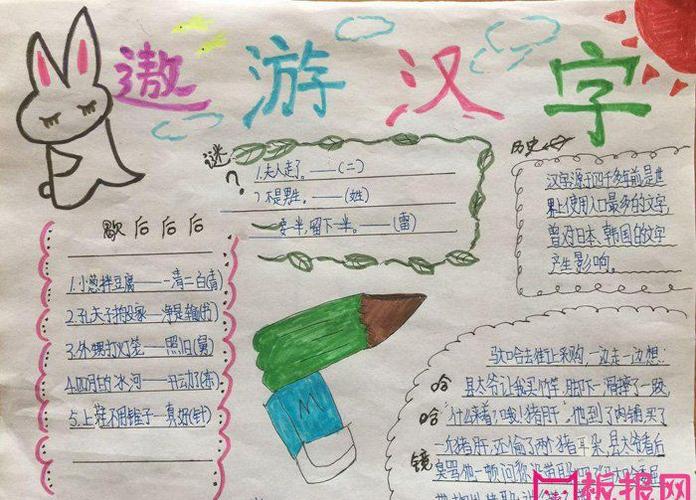 遨游汉字
谜
?
1.夫人走了。——(二)
2.不是男生。——(姓)
要一半,留下一半。——(雷)
历史
汉字源于四千多年前是世
界上使用人口最多的文字,
曾对日本、韩国的文字
产生影响。
歇后后后
1.小葱拌豆腐——一清二白(青)
2.孔夫子搬家——净是输(书)
3.外甥打灯笼——照旧(舅)
4.四月的冰河——开动了(冻)
5.上鞋不用锥子—真好(针)
哈哈镜
马大哈去街上采购,一边走一边想:
县太爷让我买竹竿,脚下一滑摔了一跤,
"什么来着?哦!猪肝",他到了肉铺买了
一片猪肝,还偷了两个猪耳朵,县太爷看后
臭骂他一顿问你没带
板报网